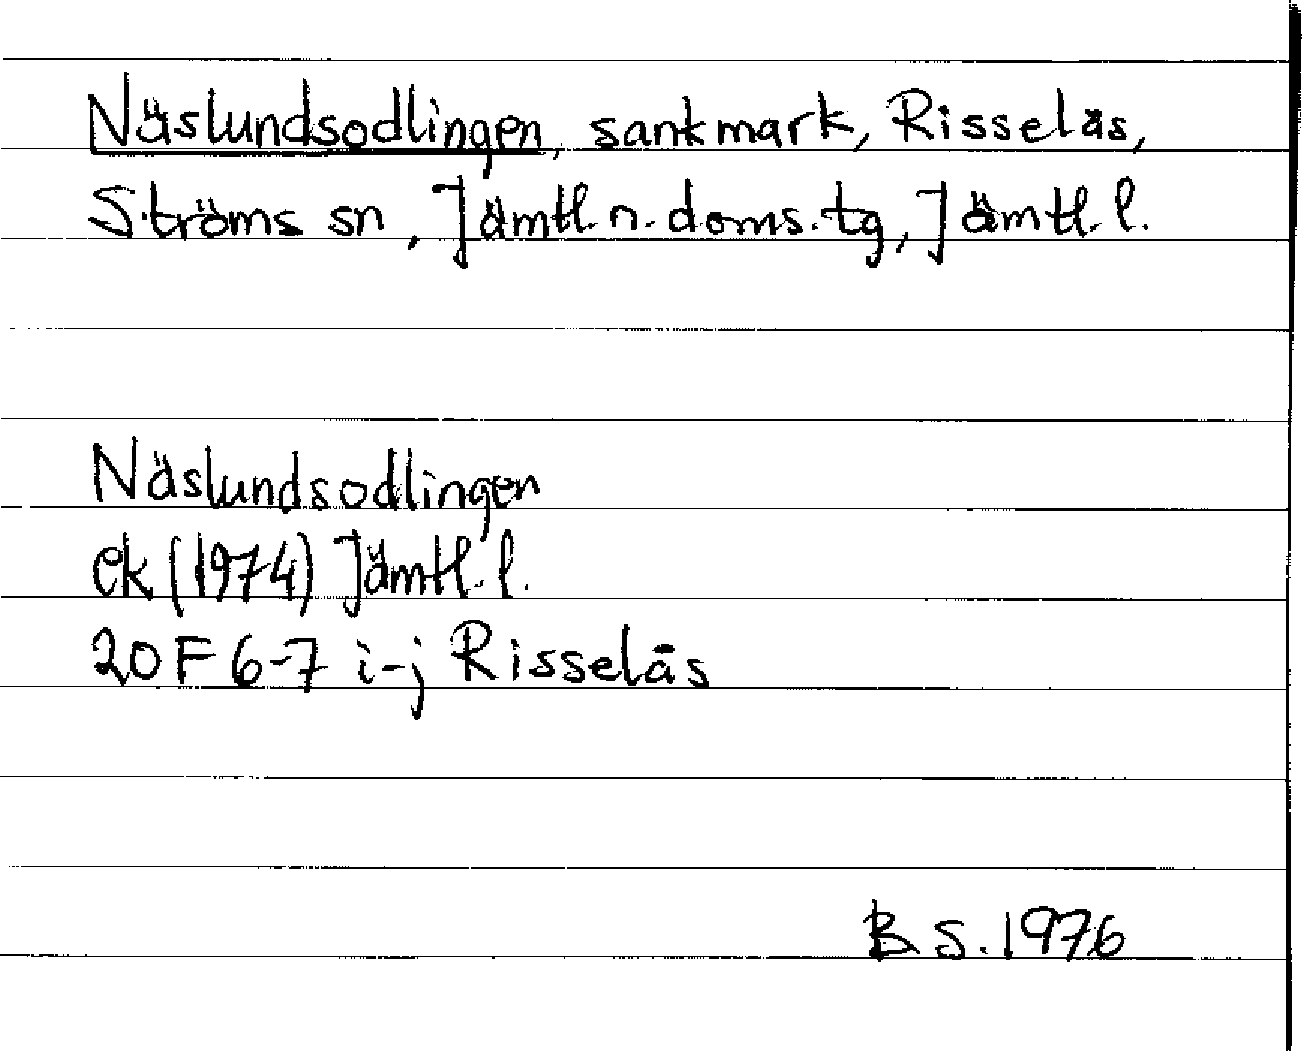 Näslundsodlingen, sankmark, Risselås,
Ströms sn, Jämtl. n. doms. tg, Jämtl. l.
Näslundsodlingen
ek (1974) Jämtl. l.
20 F 6-7 i-j Risselås
B S. 1976